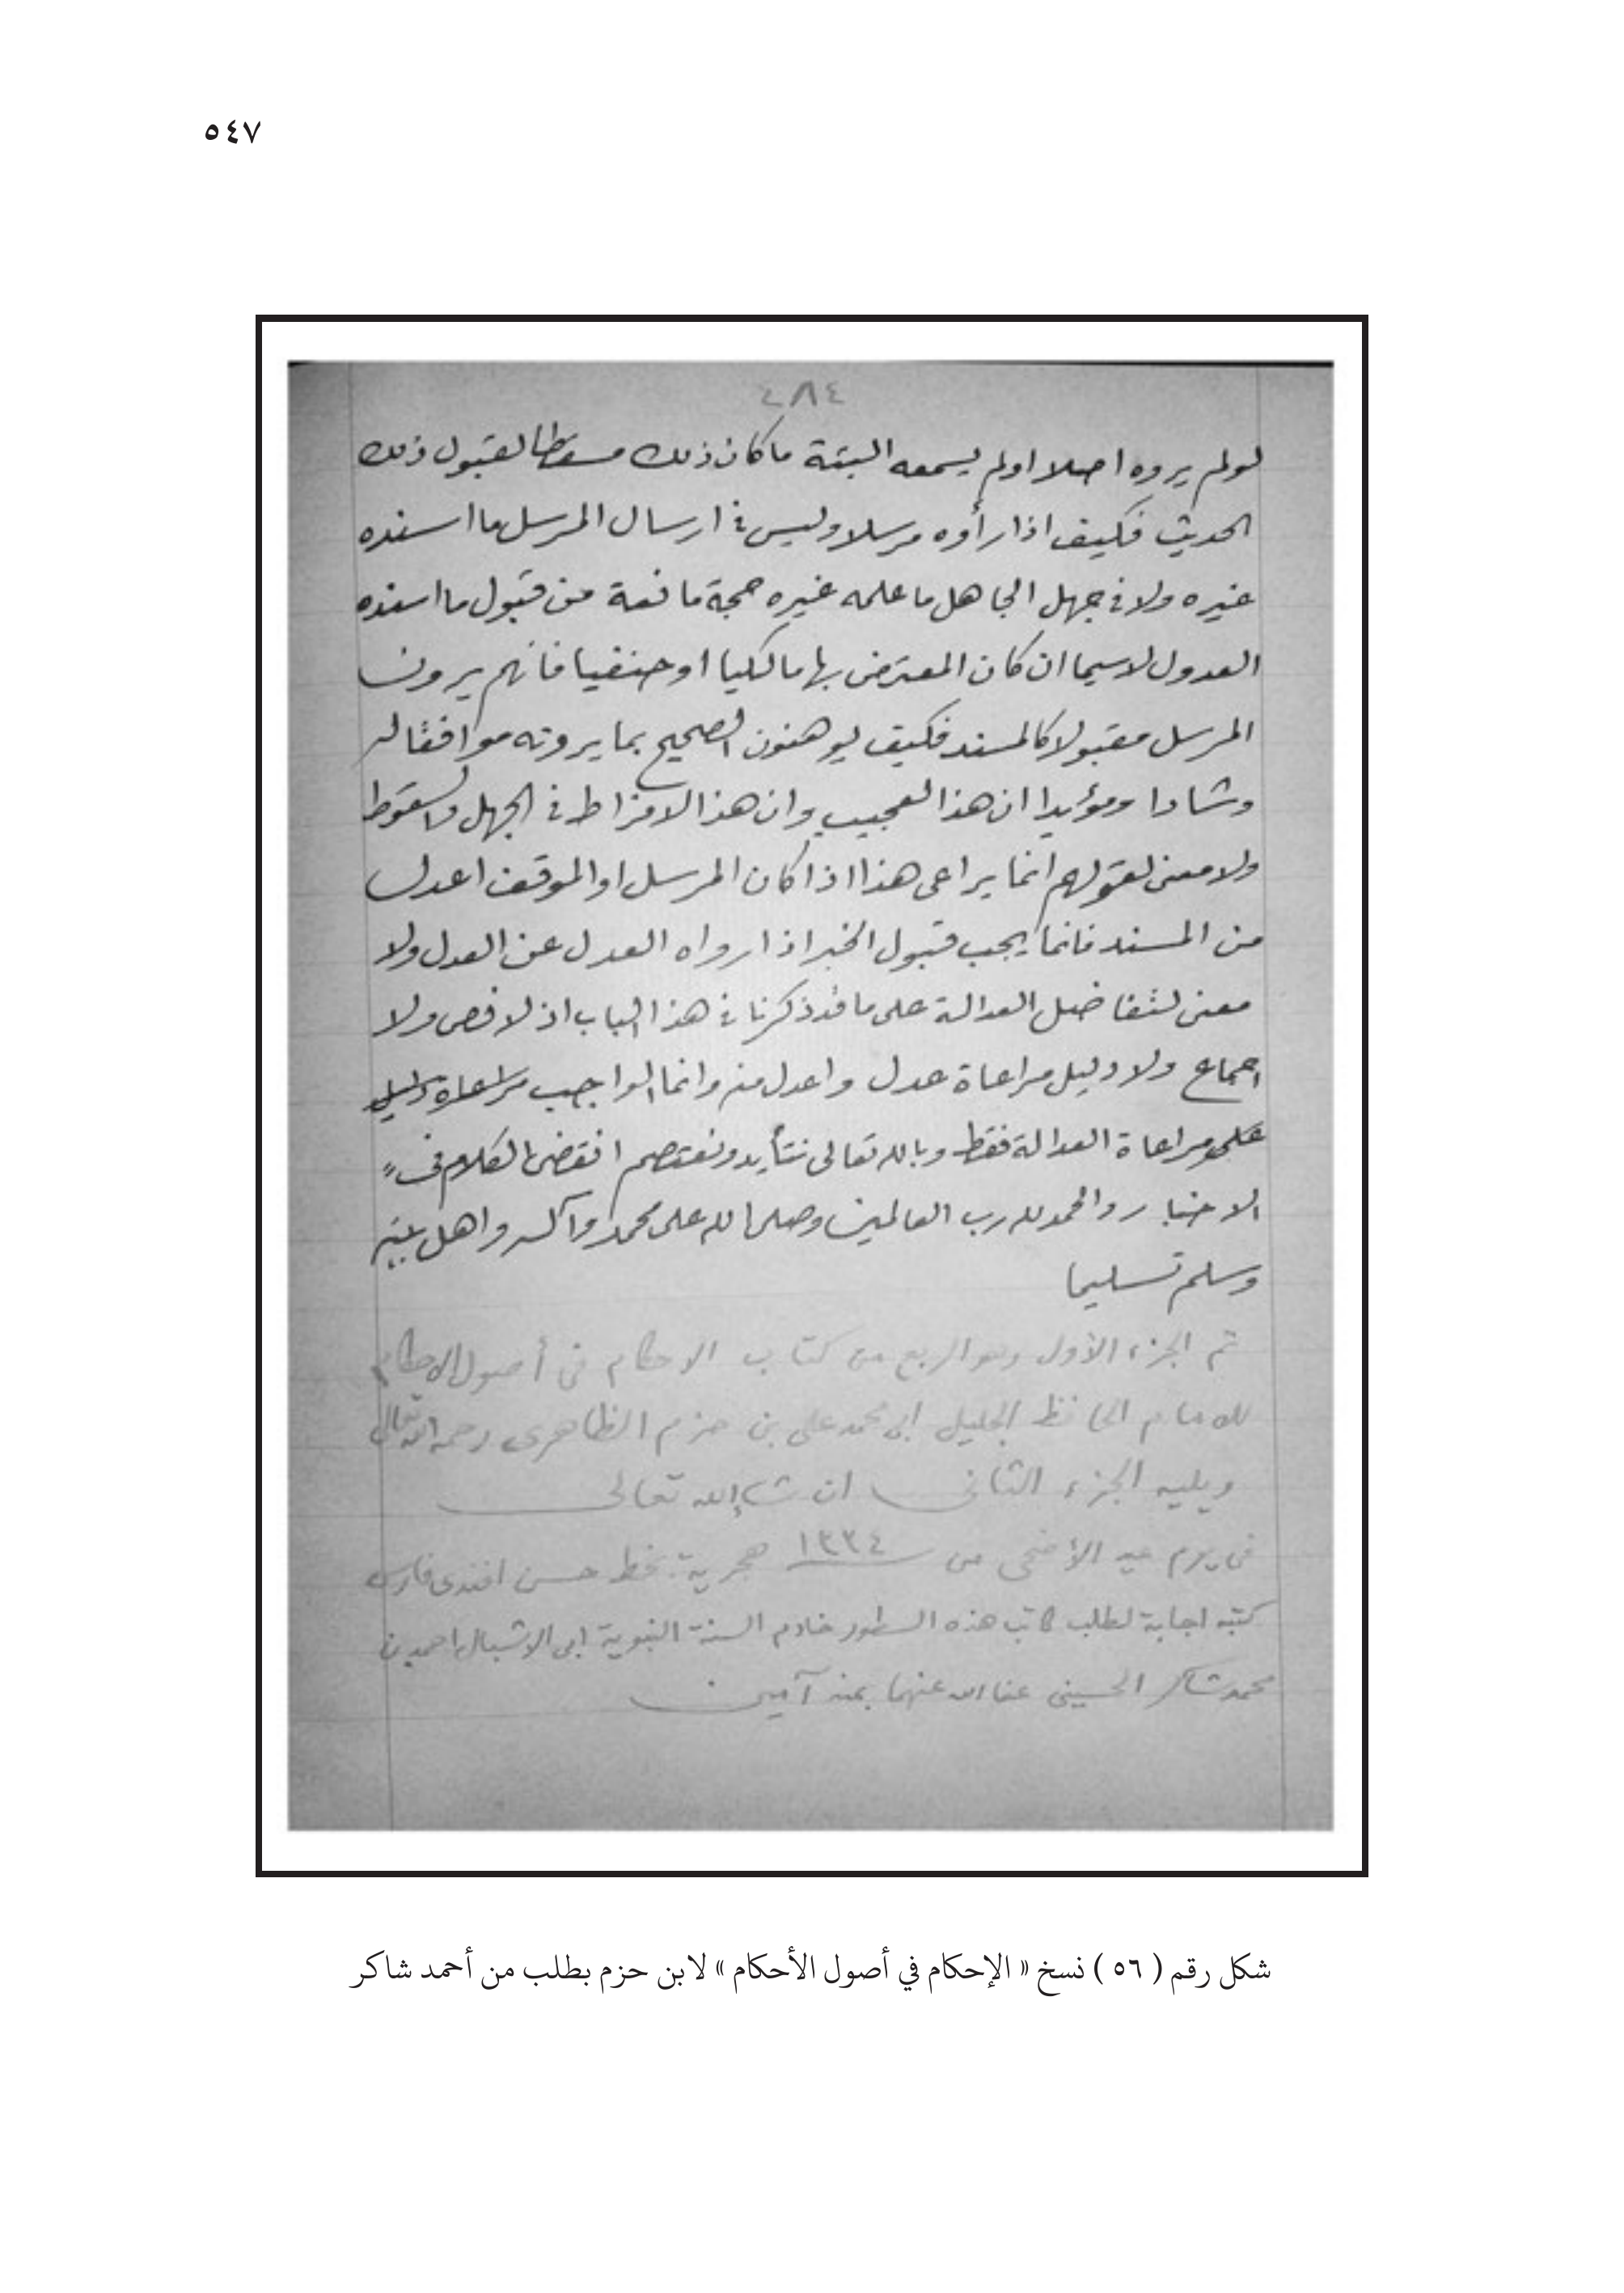 ٥٤٧
٤٨٤
لولم يروه اصلا اولم يسمعه البتة ماكان ذلك مسقطا لقبول ذلك
الحديث فكيف اذا رأوه مرسلا وليس في ارسال المرسل ما اسنده
غيره ولا في جهل الجاهل ما علمه غيره حجة مانعة من قبول ما اسنده
العدول لاسيما ان كان المعترض بها مالكيا او حنفيا فانهم يرون
المرسل مقبولا كالمسند فكيف يوهنون الصحيح بما يرونه موافقا له
وشادا ومؤيدا ان هذا لعجيب وان هذا لافراط في الجهل والسقوط
ولا معنى لقولهم انما يراعى هذا اذا كان المرسل او الموقف اعدل
من المسند فانما يجب قبول الخبر اذا رواه العدل عن العدل ولا
معنى لتفاضل العدالة على ما قد ذكرنا في هذا الباب اذ لا نص ولا
اجماع ولا دليل مراعاة عدل واعدل منه وانما الواجب مراعاة
على مراعاة العدالة فقط وبالله تعالى نتأيد ونعتصم انقضى الكلام في
الاخبار والحمد لله رب العالمين وصلى الله على محمد وآله واهل بيته
وسلم تسليما
تم الجزء الأول وهو الربع من كتاب الاحكام في أصول الاحكام
للامام الحافظ الجليل ابي محمد علي بن حزم الظاهرى رحمه الله تعالى
ويليه الجزء الثاني ان شاء الله تعالى
في يوم عيد الأضحى من ١٣٣٤ هجرية بخط حسن افندى فارس
كتبه اجابة لطلب كاتب هذه السطور خادم السنة النبوية ابى الاشبال احمد بن
محمد شاكر الحسينى عفا الله عنهما بمنه آمين
شكل رقم ( ٥٦ ) نسخ « الإحكام في أصول الأحكام » لابن حزم بطلب من أحمد شاكر